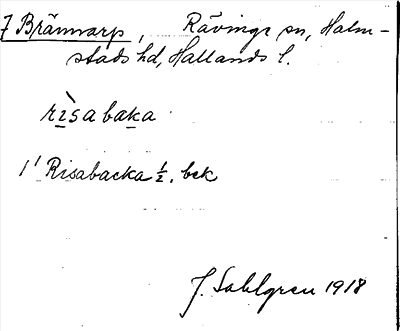 7 Brämvarp, Rävinge sn, Halm-
stads hd, Hallands l.
rìsabaka
1' Risabacka ½. bck
J. Sahlgren 1918